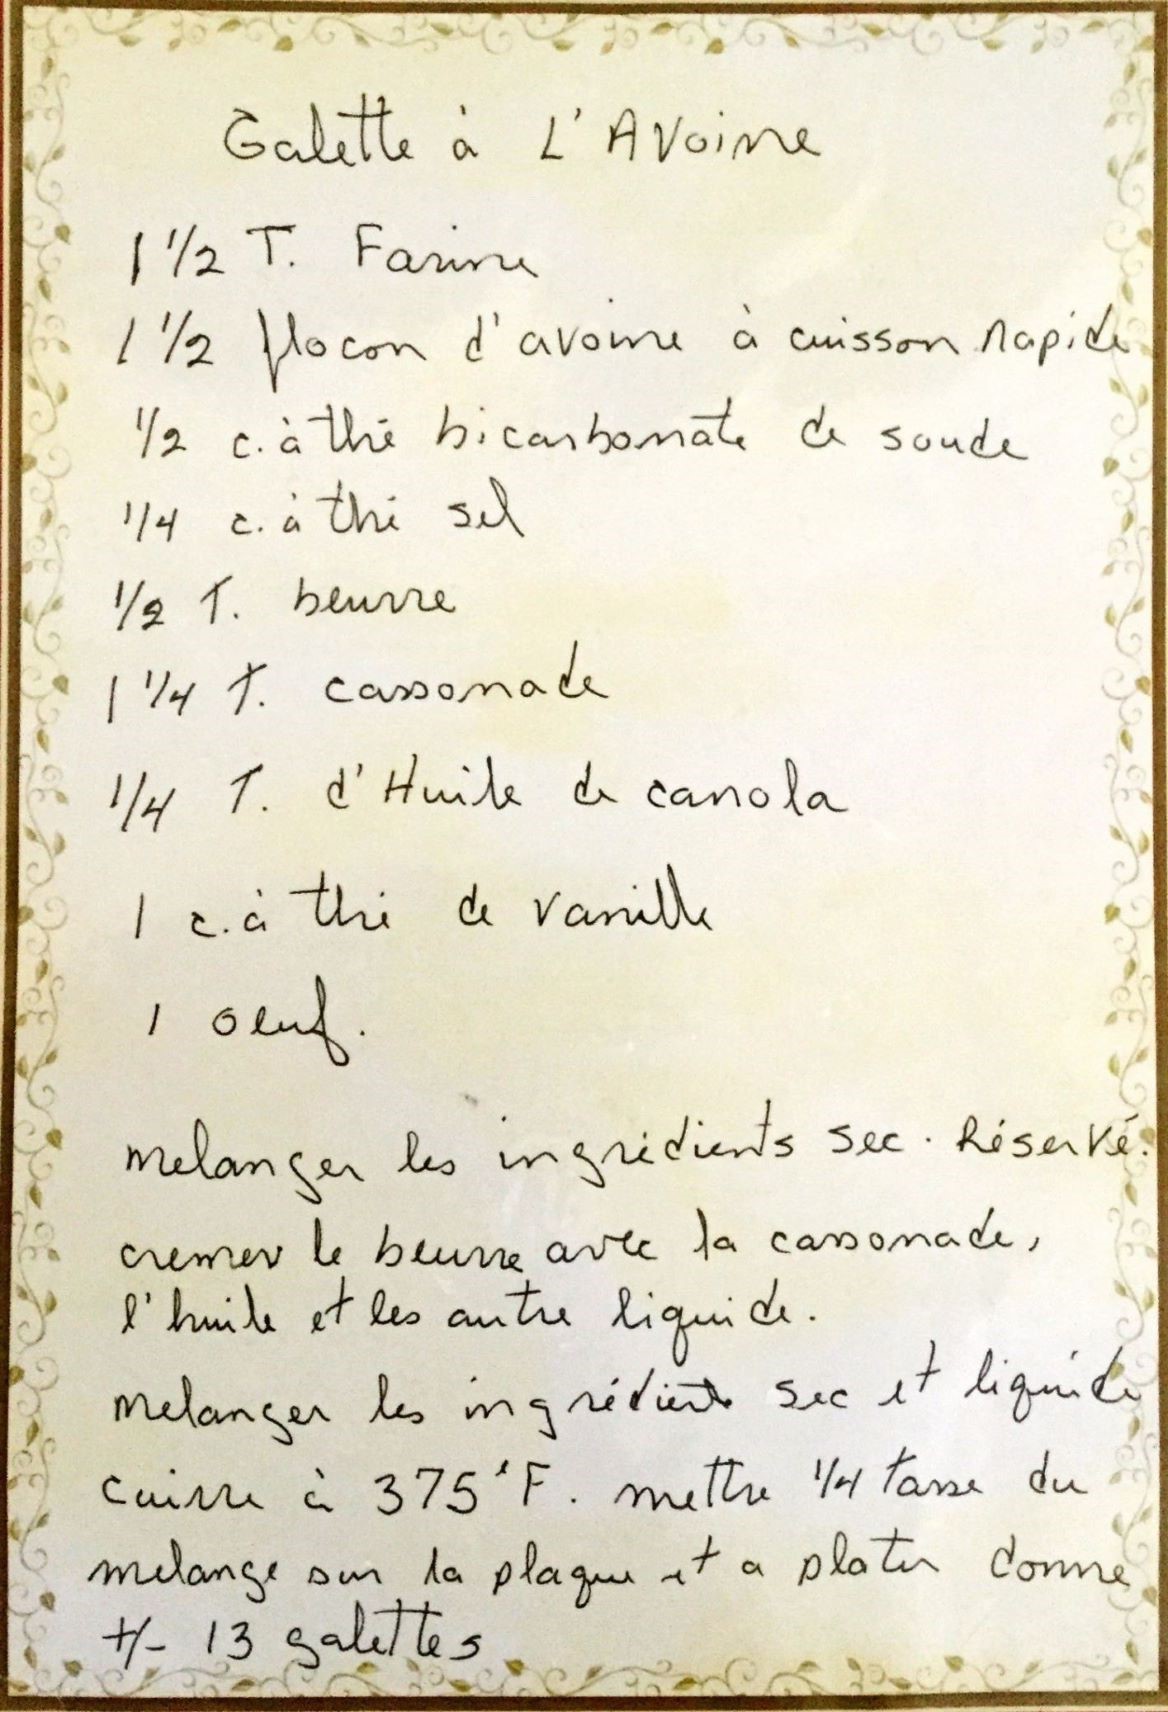 Galette à L'Avoine
1 1/2 T. Farine
1 1/2 flocon d'avoine à cuisson rapide
1/2 c. à thé bicarbonate de soude
1/4 c. à thé sel
1/2 T. beurre
1 1/4 T. cassonade
1/4 T. d'Huile de canola
1 c. à thé de vanille
1 oeuf.
melanger les ingrédients sec. Réservé.
cremer le beurre avec la cassonade,
l'huile et les autre liquide.
melanger les ingrédients sec et liquide
cuirre à 375°F. mettre 1/4 tasse du
melange sur la plaque et a plater donne
+/- 13 galettes